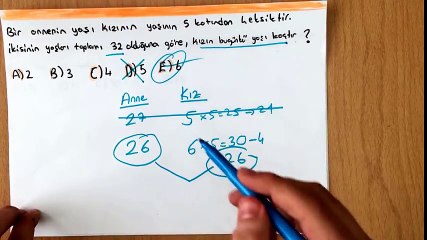 Bir annenin yaşı kızının yaşının 5 katından 4 eksiktir.
ikisinin yaşları toplamı 32 olduğuna göre, kızın bugünkü yaşı kaçtır ?
A) 2 B) 3 C) 4 D) 5 E) 6
Anne Kız
27 5 x 5 = 25 → 21
26 6 x 5 = 30 - 4
26